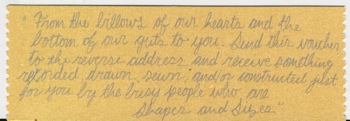 "From the billows of our hearts and the
bottom of our guts to you. Send this voucher
to the reverse address and receive something
recorded, drawn, sewn, and/or constructed just
for you by the busy people who are
Shapes and Sizes."